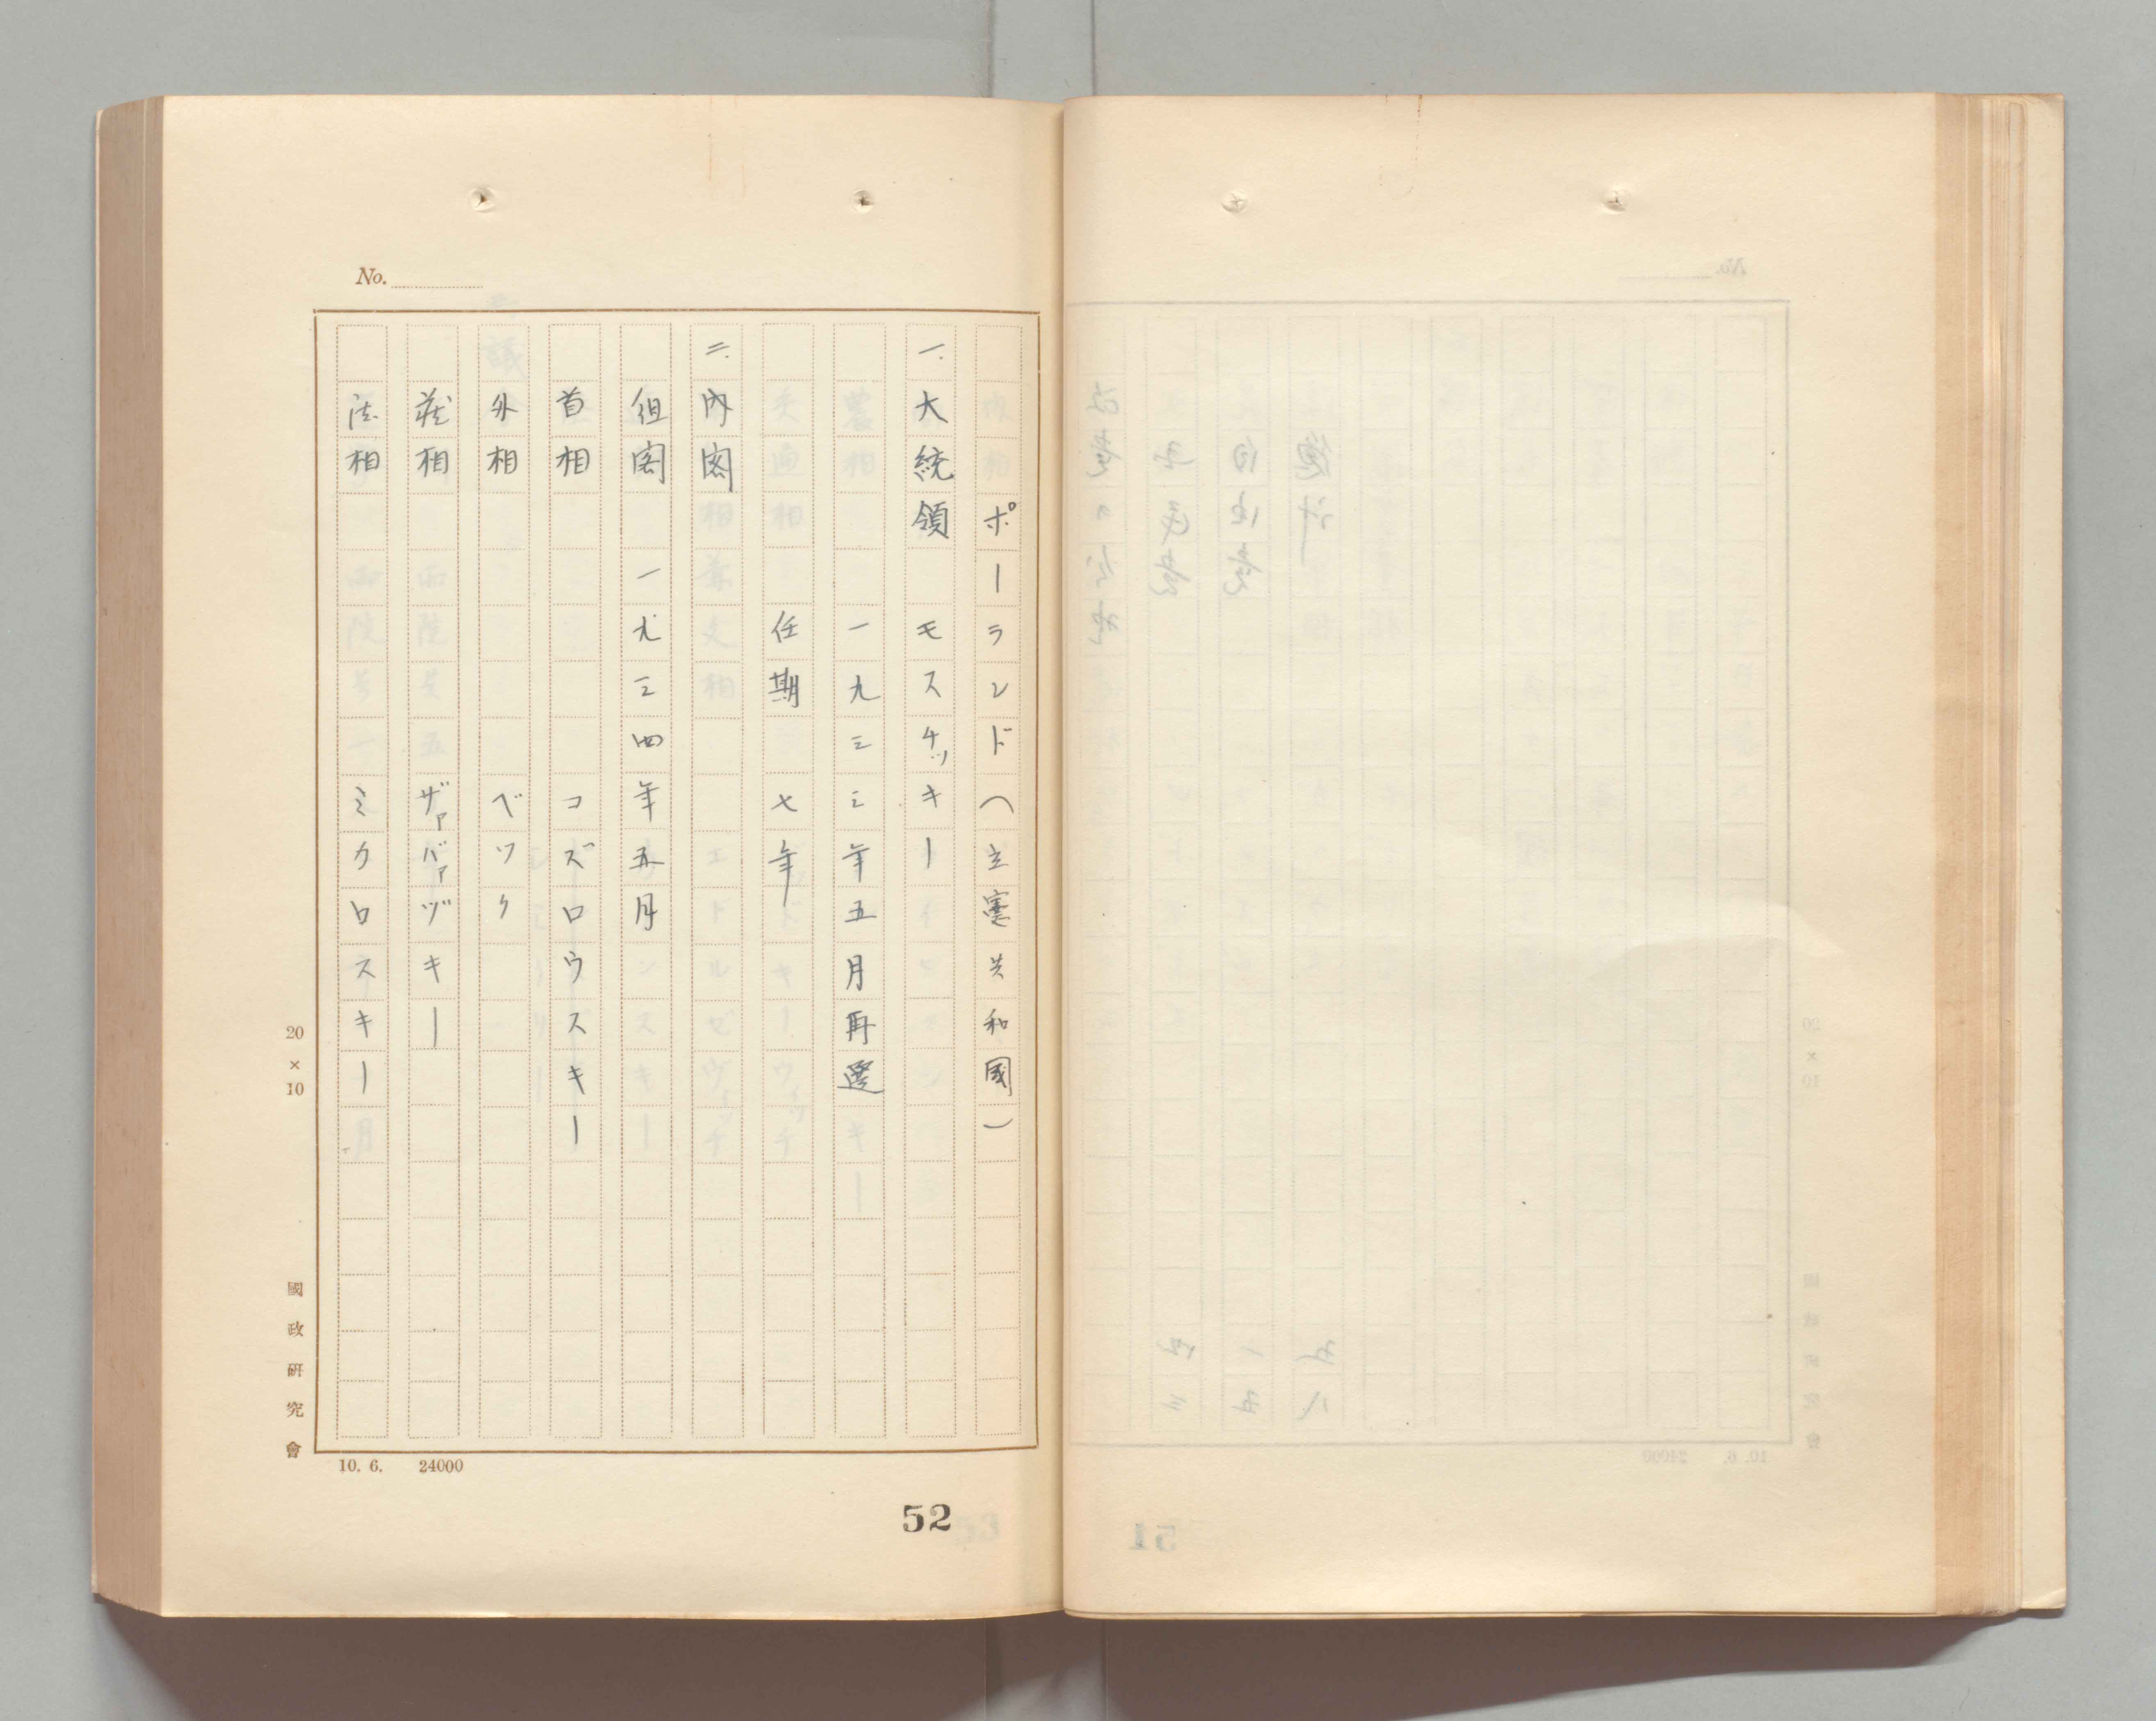 No.
ポーランド(立憲共和國)
一.大統領 モスチツキー
一九三三年五月再選
任期 七年
二.内閣
組閣 一九三四年五月
首相 コズロウスキー
外相 ベツク
蔵相 ザァバァヅキー
法相 ミクロスキー
20×10
國政研究會
10. 6. 24000
52